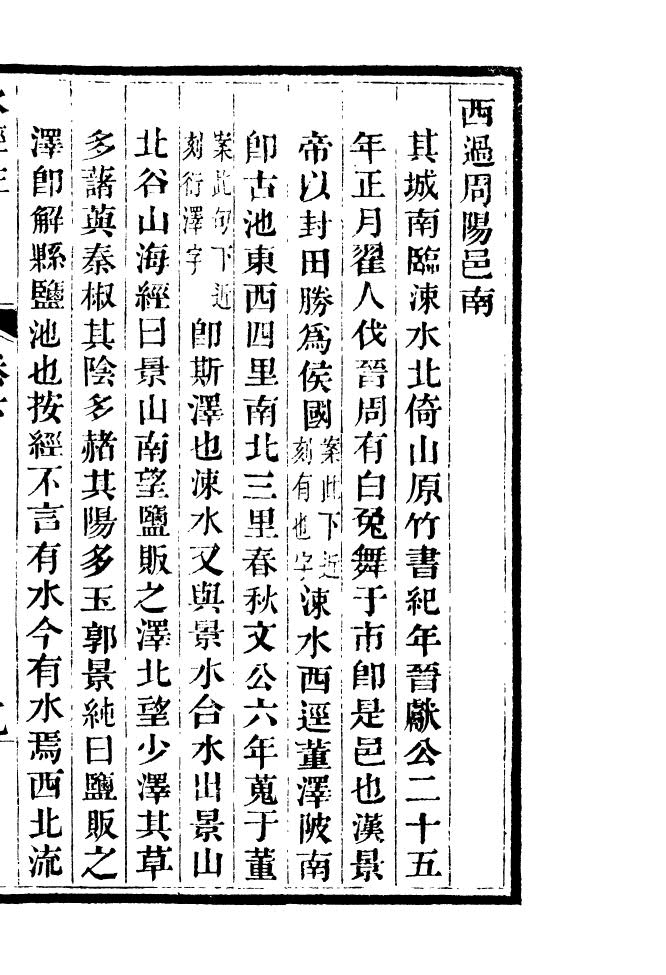 西過周陽邑南
其城南臨涑水北倚山原竹書紀年晉獻公二十五
年正月翟人伐晉周有白兔舞于市卽是邑也漢景
帝以封田勝爲侯國案此下近刻有也字涑水西逕董澤陂南
卽古池東西四里南北三里春秋文公六年蒐于董
案此句下近刻衍澤字卽斯澤也涑水又與景水合水出景山
北谷山海經曰景山南望鹽販之澤北望少澤其草
多藷藇秦椒其陰多赭其陽多玉郭景純曰鹽販之
澤卽解縣鹽池也按經不言有水今有水焉西北流